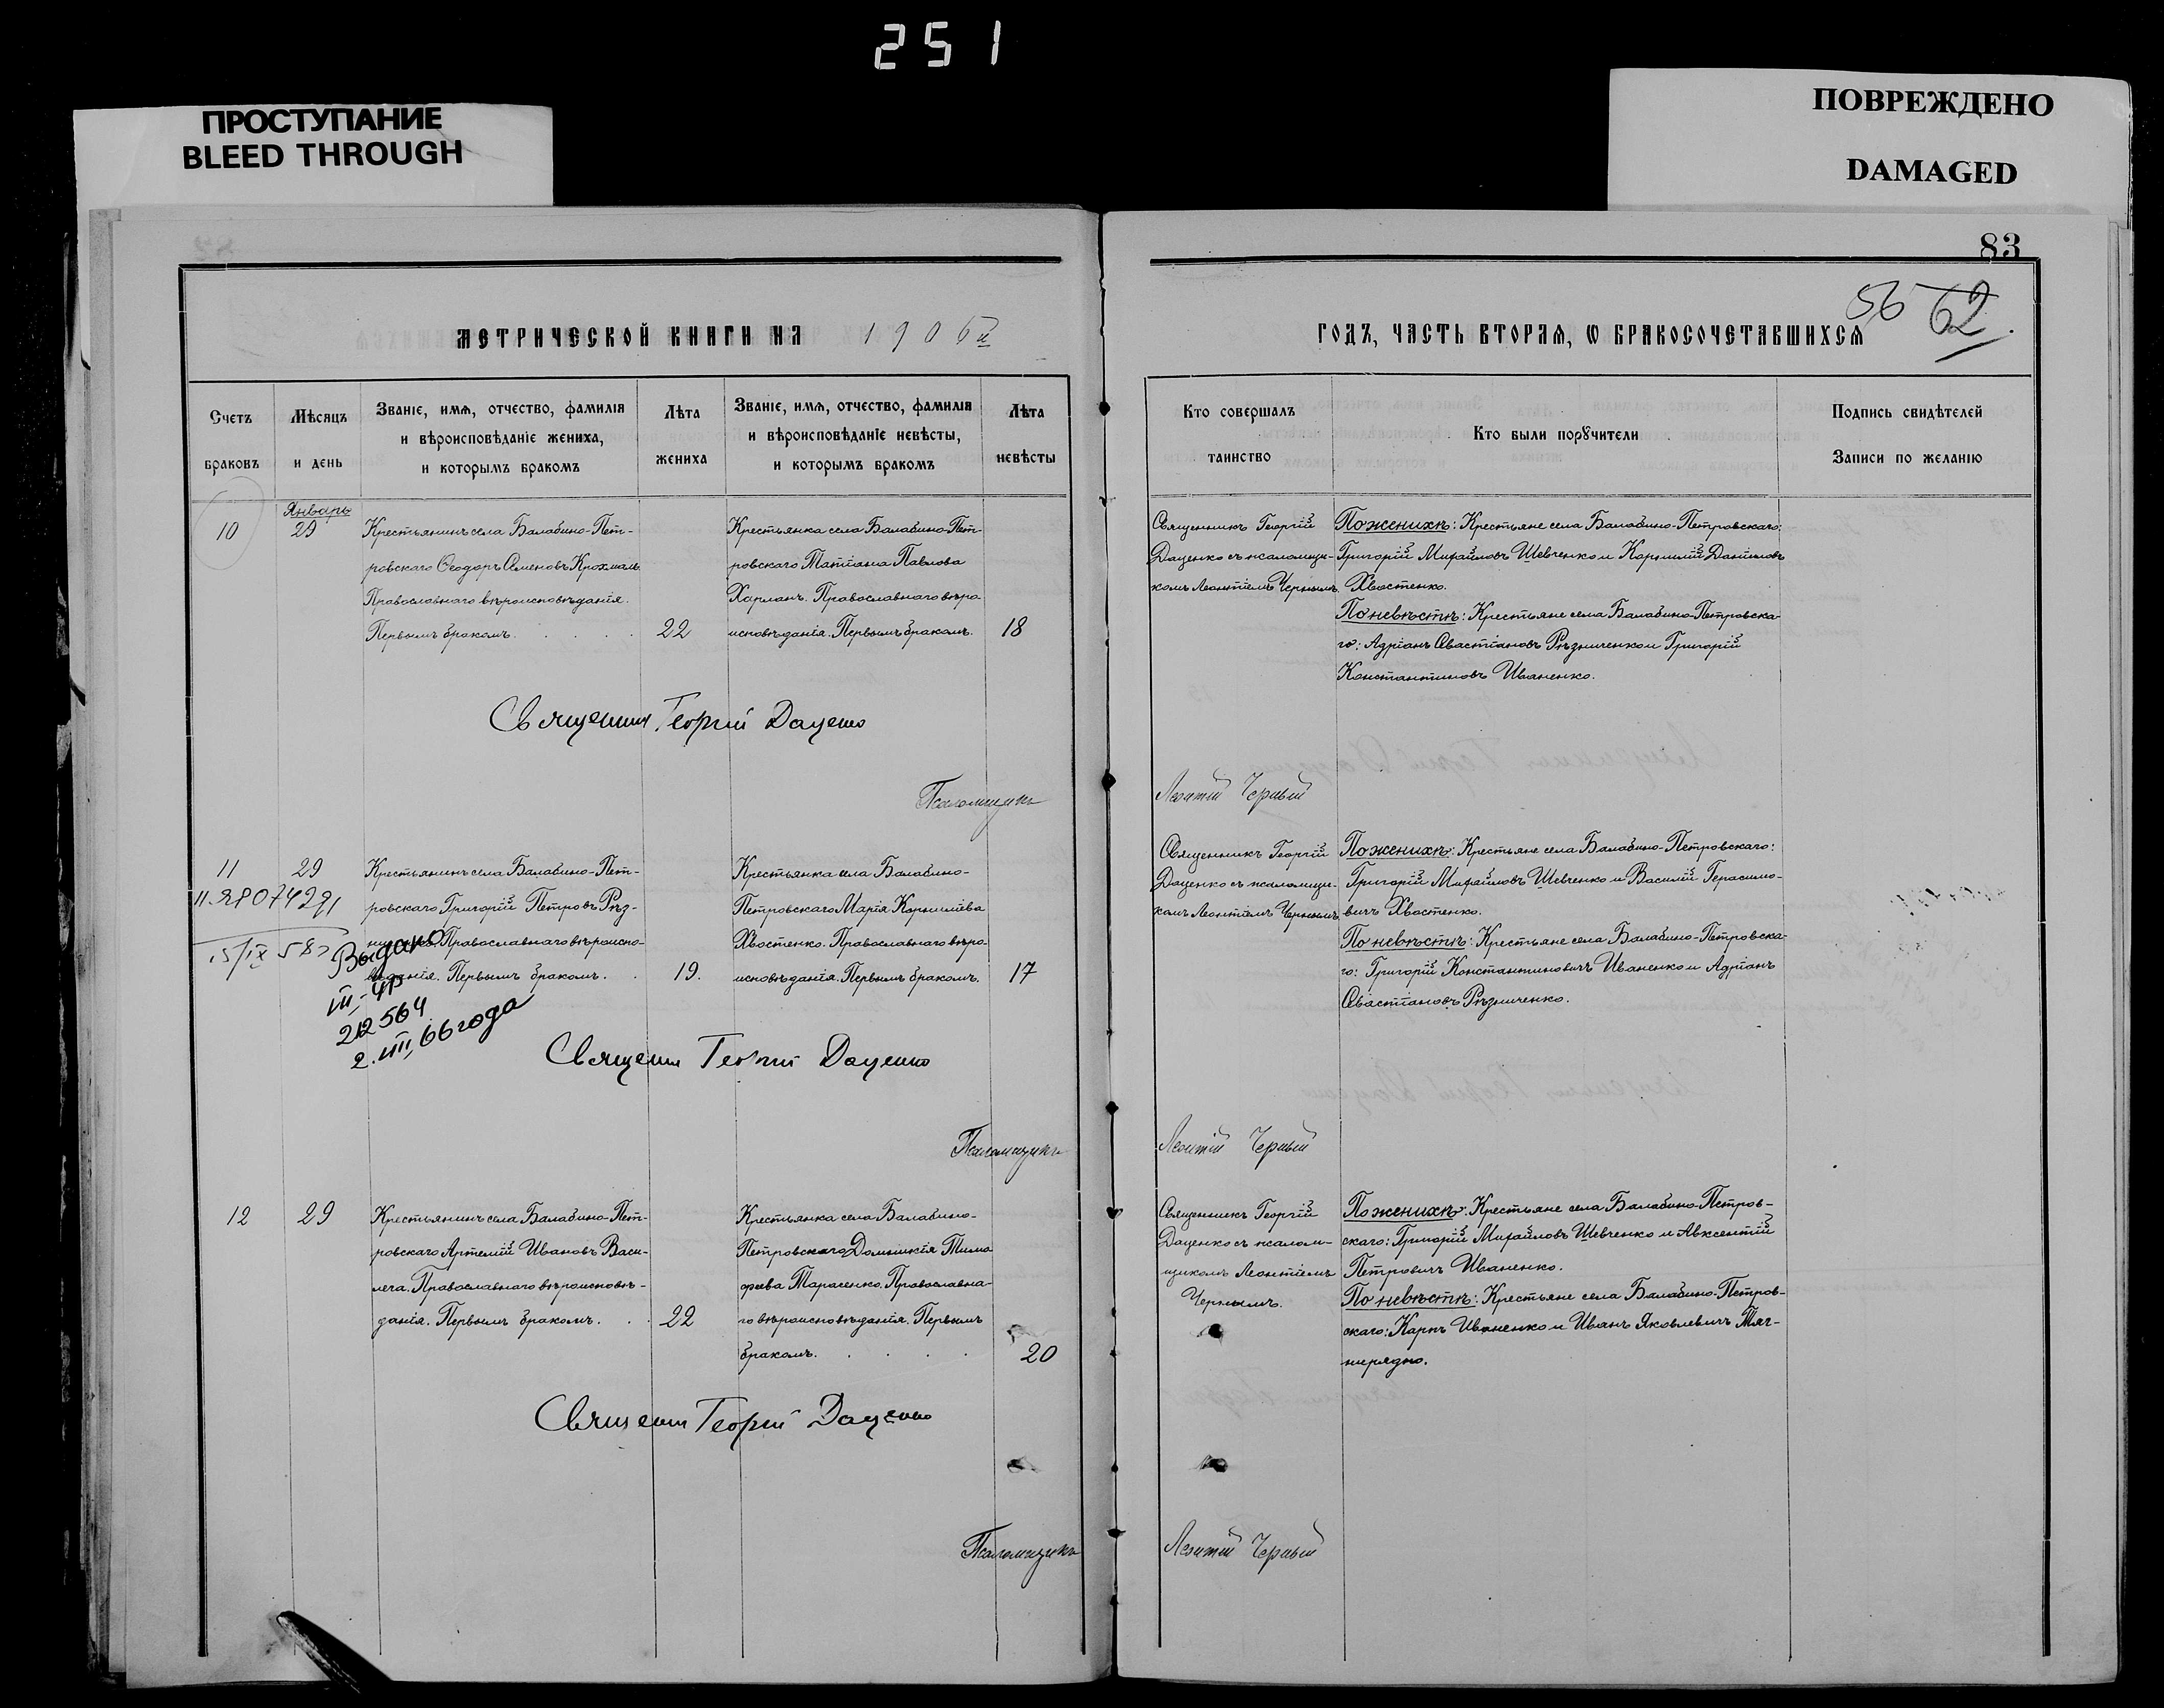 251
ПРОСТУПАНИЕ
BLEED THROUGH
ПОВРЕЖДЕНО
DAMAGED
83
56 62.
МЕТРИЧЕСКОЙ КНИГИ НА 1906й
ГОДЪ, ЧАСТЬ ВТОРАѦ, Ѡ БРАКОСОЧЕТАВШИХСѦ
Счетъ браковъ
Мѣсяцъ и день
Званіе, имѧ, отчество, фамилія
и вѣроисповѣданіе жениха,
и которымъ бракомъ
Лѣта жениха
Званіе, имѧ, отчество, фамилія
и вѣроисповѣданіе невѣсты,
и которымъ бракомъ
Лѣта невѣсты
Кто совершалъ таинство
Кто были порꙋчители
Подпись свидѣтелей
Записи по желанію
10
Январь
29
Крестьянинъ села Балабино-Пет-
ровскаго Ѳеодоръ Семеновъ Крохмаль
Православнаго вѣроисповѣданія.
Первымъ бракомъ.
22
Крестьянка села Балабино-Пет-
ровскаго Татіана Павлова
Харланъ. Православнаго вѣро
исповѣданія. Первымъ бракомъ.
18
Священникъ Георгій
Даценко съ псаломщи-
комъ Леонтіемъ Чернымъ.
По женихѣ: Крестьяне села Балабино-Петровскаго:
Григорій Михайловъ Шевченко и Корнилій Даніиловъ
Хвостенко.
По невѣстѣ: Крестьяне села Балабино-Петровска
го: Адріанъ Севастіановъ Рѣзниченко и Григорій
Константиновъ Иваненко.
Священник Георгій Даценко
Псаломщикъ Леонтій Черный
11
29
Крестьянинъ села Балабино-Пет-
ровскаго Григорій Петровъ Рѣз-
Православнаго вѣроиспо-
вѣданія. Первымъ бракомъ.
19.
Крестьянка села Балабино-
Петровскаго Марія Корниліева
Хвостенко. Православнаго вѣро-
исповѣданія. Первымъ бракомъ.
17
Выдано
212564
2.VIII 66 года
Священникъ Георгій
Даценко съ псаломщи-
комъ Леонтіемъ Чернымъ
По женихѣ: Крестьяне села Балабино-Петровскаго:
Григорій Михайловъ Шевченко и Василій Герасимо-
вичъ Хвостенко.
По невѣстѣ: Крестьяне села Балабино-Петровска-
го: Григорій Константиновичъ Иваненко и Адріанъ
Севастіановъ Рѣзниченко.
Священник Георгій Даценко
Псаломщикъ Леонтій Черный
12
29
Крестьянинъ села Балабино-Пет-
ровскаго Артемій Ивановъ Васи-
леча. Православнаго вѣроисповѣ-
данія. Первымъ бракомъ.
22
Крестьянка села Балабино-
Петровскаго Домникія Тимо
феева Тарасенко. Православна-
го вѣроисповѣданія. Первымъ
бракомъ.
20
Священникъ Георгій
Даценко съ псалом-
щикомъ Леонтіемъ
Чернымъ.
По женихѣ: Крестьяне села Балабино-Петров-
скаго: Григорій Михайловъ Шевченко и Авксентій
Петровичъ Иваненко.
По невѣстѣ: Крестьяне села Балабино-Петров-
скаго: Карпъ Иваненко и Иванъ Яковлевичъ Тяг-
нирядно.
Священник Георгій Даценко
Псаломщикъ Леонтій Черный